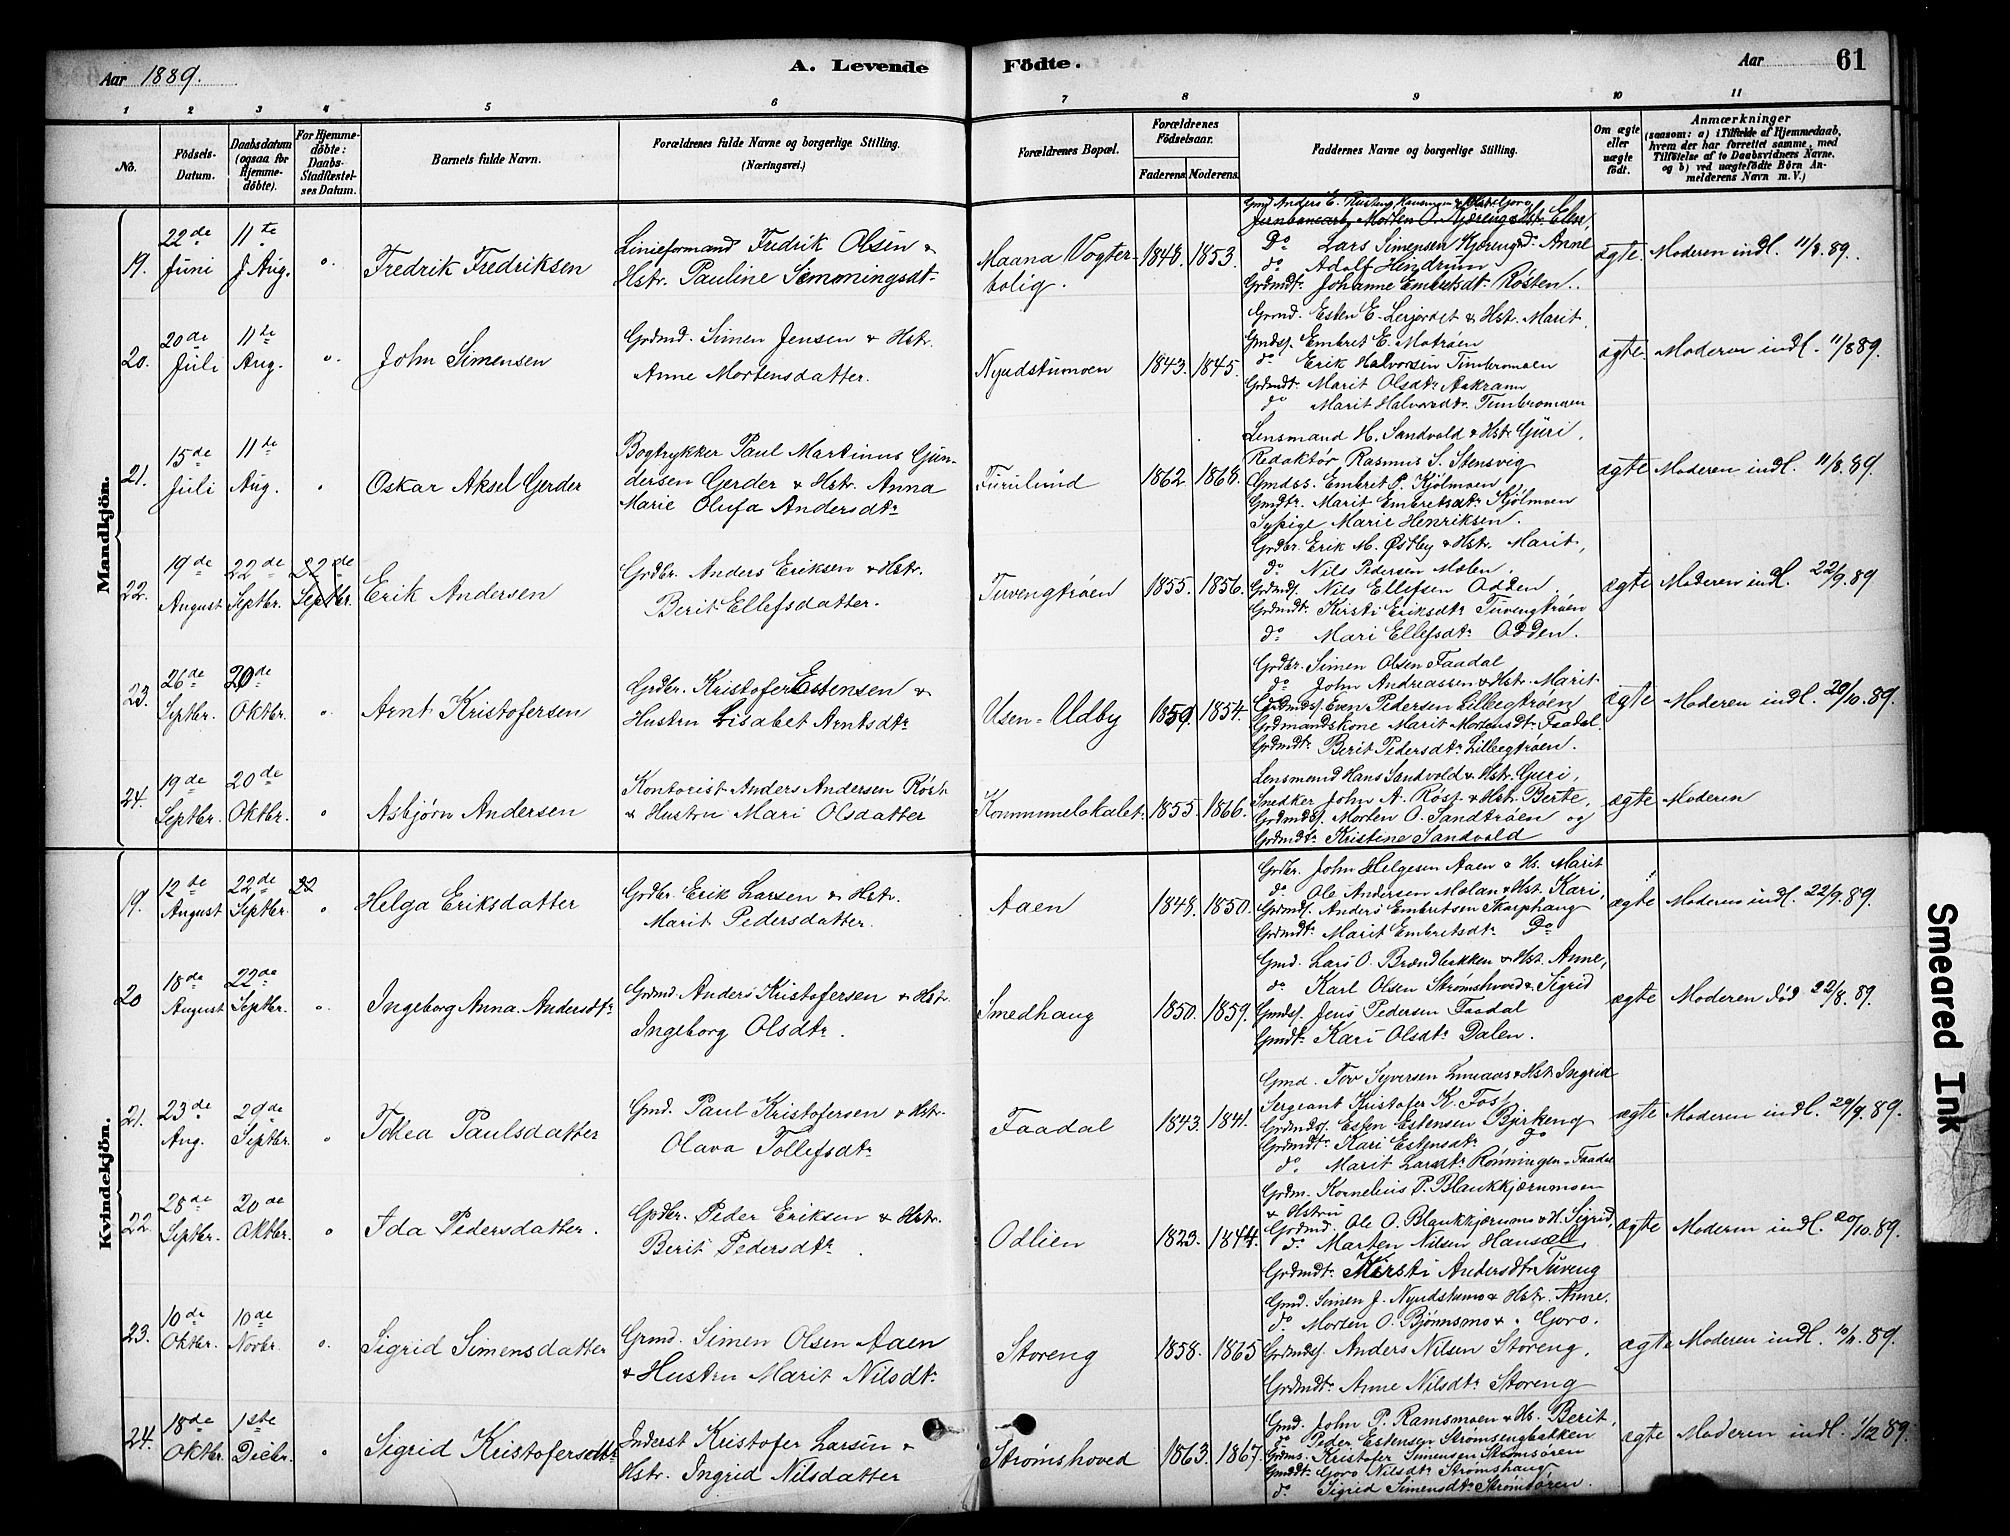 Aar 1889.
A. Levende Födte.
Aar
61
1 2 3 4 5 6 7 8 9 10 11
No.
Födsels-Datum.
Daabsdatum (ogsaa for Hjemme-döbte).
For Hjemme-döbte: Daabs-Stadfæstel-ses Datum.
Barnets fulde Navn.
Forældrenes fulde Navne og borgerlige Stilling. (Næringsvei.)
Forældrenes Bopæl.
Forældrenes Födselsaar.
Faderens. Moderens.
Faddernes Navne og borgerlige Stilling.
Om ægte eller uægte födt.
Anmærkninger
(saasom: a) i Tilfælde af Hjemmedaab, hvem der har forrettet samme, med Tilföielse af to Daabsvidners Navne, og b) ved uægtefödte Börn An-melderens Navn m. V.)
Mandkjön.
19. 22de Juni 11te Aug. Fredrik Fredriksen
Linieformand Fredrik Olsen &
Hstr. Pauline Simmingsdt.
Maana Vogter-
bolig. 1848. 1853.
Do Lars Simensen Kjæreng & Anne
do Adolf Hindrum
Grdmdtr Johanne Embretsdtr Røsten.
ægte. Moderen indl. 11/8. 89.
20. 20de Juli 11te Aug. John Simensen
Grdmd. Simen Jensen & Hstr.
Anne Mortensdatter.
Nyudstumoen 1843. 1845.
Grmd. Esten E. Lerjordet & Hst. Marit.
Gmds. Embret E. Motrøen
do Erik Halvorsen Timbromoen
Grdmdtr Marit Olsdtr Aakrann
do Marit Halvorsdtr. Timbromoen
ægte Moderen indl. 11/8 89.
21. 15de Juli 11te Aug. Oskar Aksel Gerder
Bogtrykker Paul Martinus Gun-
dersen Gerder & Hstr. Anna
Marie Olufa Andersdtr
Furulund 1862. 1868.
Lensmand H. Sandvold & Hstr Guri,
Redaktør Rasmus S. Stensvig
Gmdss. Embret P. Kjølmoen
Gmdtr. Marit Embretsdtr Kjølmoen
Sypige Marie Henriksen.
ægte Moderen indl. 11/8. 89.
22. 19de August 22de Septbr. 22de Septbr. Erik Andersen
Grdbr. Anders Eriksen & Hstr.
Berit Ellefsdatter.
Tuvengtrøen 1855. 1856.
Grdbr. Erik M. Østby & Hstr. Marit,
do Nils Pedersen Moen.
Grdmds. Nils Ellefsen Odden.
Grdmdtr. Kirsti Eriksdtr Tuvengtrøen
do Mari Ellefsdtr Odden.
ægte Moderen indl. 22/9. 89
23. 26de Septbr. 20de Oktbr. Arnt Kristofersen
Grdbr. Kristofer Estensen &
Hustru Lisabet Arntsdtr
Usen-Udby 1859. 1854.
Grdbr. Simen Olsen Faadal
do John Andreassen & Hstr. Marit
Grdmds. Even Pedersen Lilbegtrøen
Grdmandskone Marit Mortensdtr Faadal.
Grdmdtr Berit Pedersdtr Lilbegtrøen.
ægte Moderen indl. 20/10. 89.
24. 19de Septbr. 20de Oktbr. Asbjørn Andersen
Kontorist Anders Andersen Røst
& Hustru Mari Olsdatter
Kommunelokalet. 1855. 1866.
Lensmand Hans Sandvold & Hstr. Guri,
Snedker John A. Røst & Hstr Berte,
Grdmds. Morten O. Sandtrøen og
Grdmdtr Kristine Sandvold
ægte Moderen
Kvindekjön.
19. 12de August 22de Septbr. 22 Helga Eriksdatter
Grdbr. Erik Larsen & Hstr.
Marit Pedersdatter.
Aaen 1848. 1850.
Grdbr. John Helgesen Aaen & Hs. Marit
do. Ole Andersen Moløn & Hst. Kari,
Grdmds. Anders Embretsen Skarphaug
Grdmdtr Marit Embretsdtr Do
ægte Moderen indl. 22/9. 89.
20 18de August 22de Septbr. Ingeborg Anna Andersdtr
Grdmd. Anders Kristofersen & Hstr.
Ingeborg Olsdtr.
Smedhaug 1850. 1859.
Gmd. Lars O. Brændbakken & Hst. Anne,
do Karl Olsen Strømshoved & Sigrid
Gmds. Jens Pedersen Faadal
Gmdtr Kari Olsdtr Dalen.
ægte Moderen død 22/8. 89.
21. 23de Aug. 29de Septbr. Tokea Paulsdatter
Gmd. Paul Kristofersen & Hstr.
Olava Tollefsdtr
Faadal 1843. 1841.
Gmd. Tov Syversen & Hst. Ingrid
Sergeant Kristofer K. Fos
Grdmds. Esten Estensen Bjirkeng
Grdmdtr Kari Estensdtr do
do. Marit Larsdtr Rønningen-Faadal
ægte Moderen indl. 29/9. 89.
22. 28de Septbr. 20de Oktbr. Ida Pedersdatter.
Grdbr. Peder Eriksen & Hstr.
Berit Pedersdtr.
Odlien 1823. 1844.
Grdm. Kornelius P. Blankkjærnmoen
& Hstru
Grdmd. Ole O. Blankkjærnmo & H. Sigrid,
do Marten Nilsen
Grdmdtr Kirsti Andersdtr Tuveng
ægte Moderen indl. 20/10. 89.
23. 10de Oktbr. 10de Novbr. Sigrid Simensdatter
Grmd. Simen Olsen Aaen
& Hustru Marit Nilsdtr
Storeng 1858. 1865
Gmd. Simen J. Nyudstumo & Hstr. Anne.
do Morten O. Bjønnsmo & Goro.
Grdmds. Anders Nilsen Storeng,
Grdmdtr Anne Nilsdtr Storeng
ægte Moderen indl. 10/11. 89.
24. 18de Oktbr. 1ste Decbr. Sigrid Kristofersdtr
Inderst Kristofer Larsen &
Hstr. Ingrid Nilsdatter
Strømshoved 1863. 1867.
Gmd. John P. Ramsmoen & Hs. Berit,
do Peder Estensen Strømsengbakken
Gdms. Kristofer Simensen Strømsøren
Gmdtr Goro Nilsdtr Strømshaug
do. Sigrid Simensdtr Strømsøren.
ægte Moderen indl. 1/12 89.
Smeared Ink